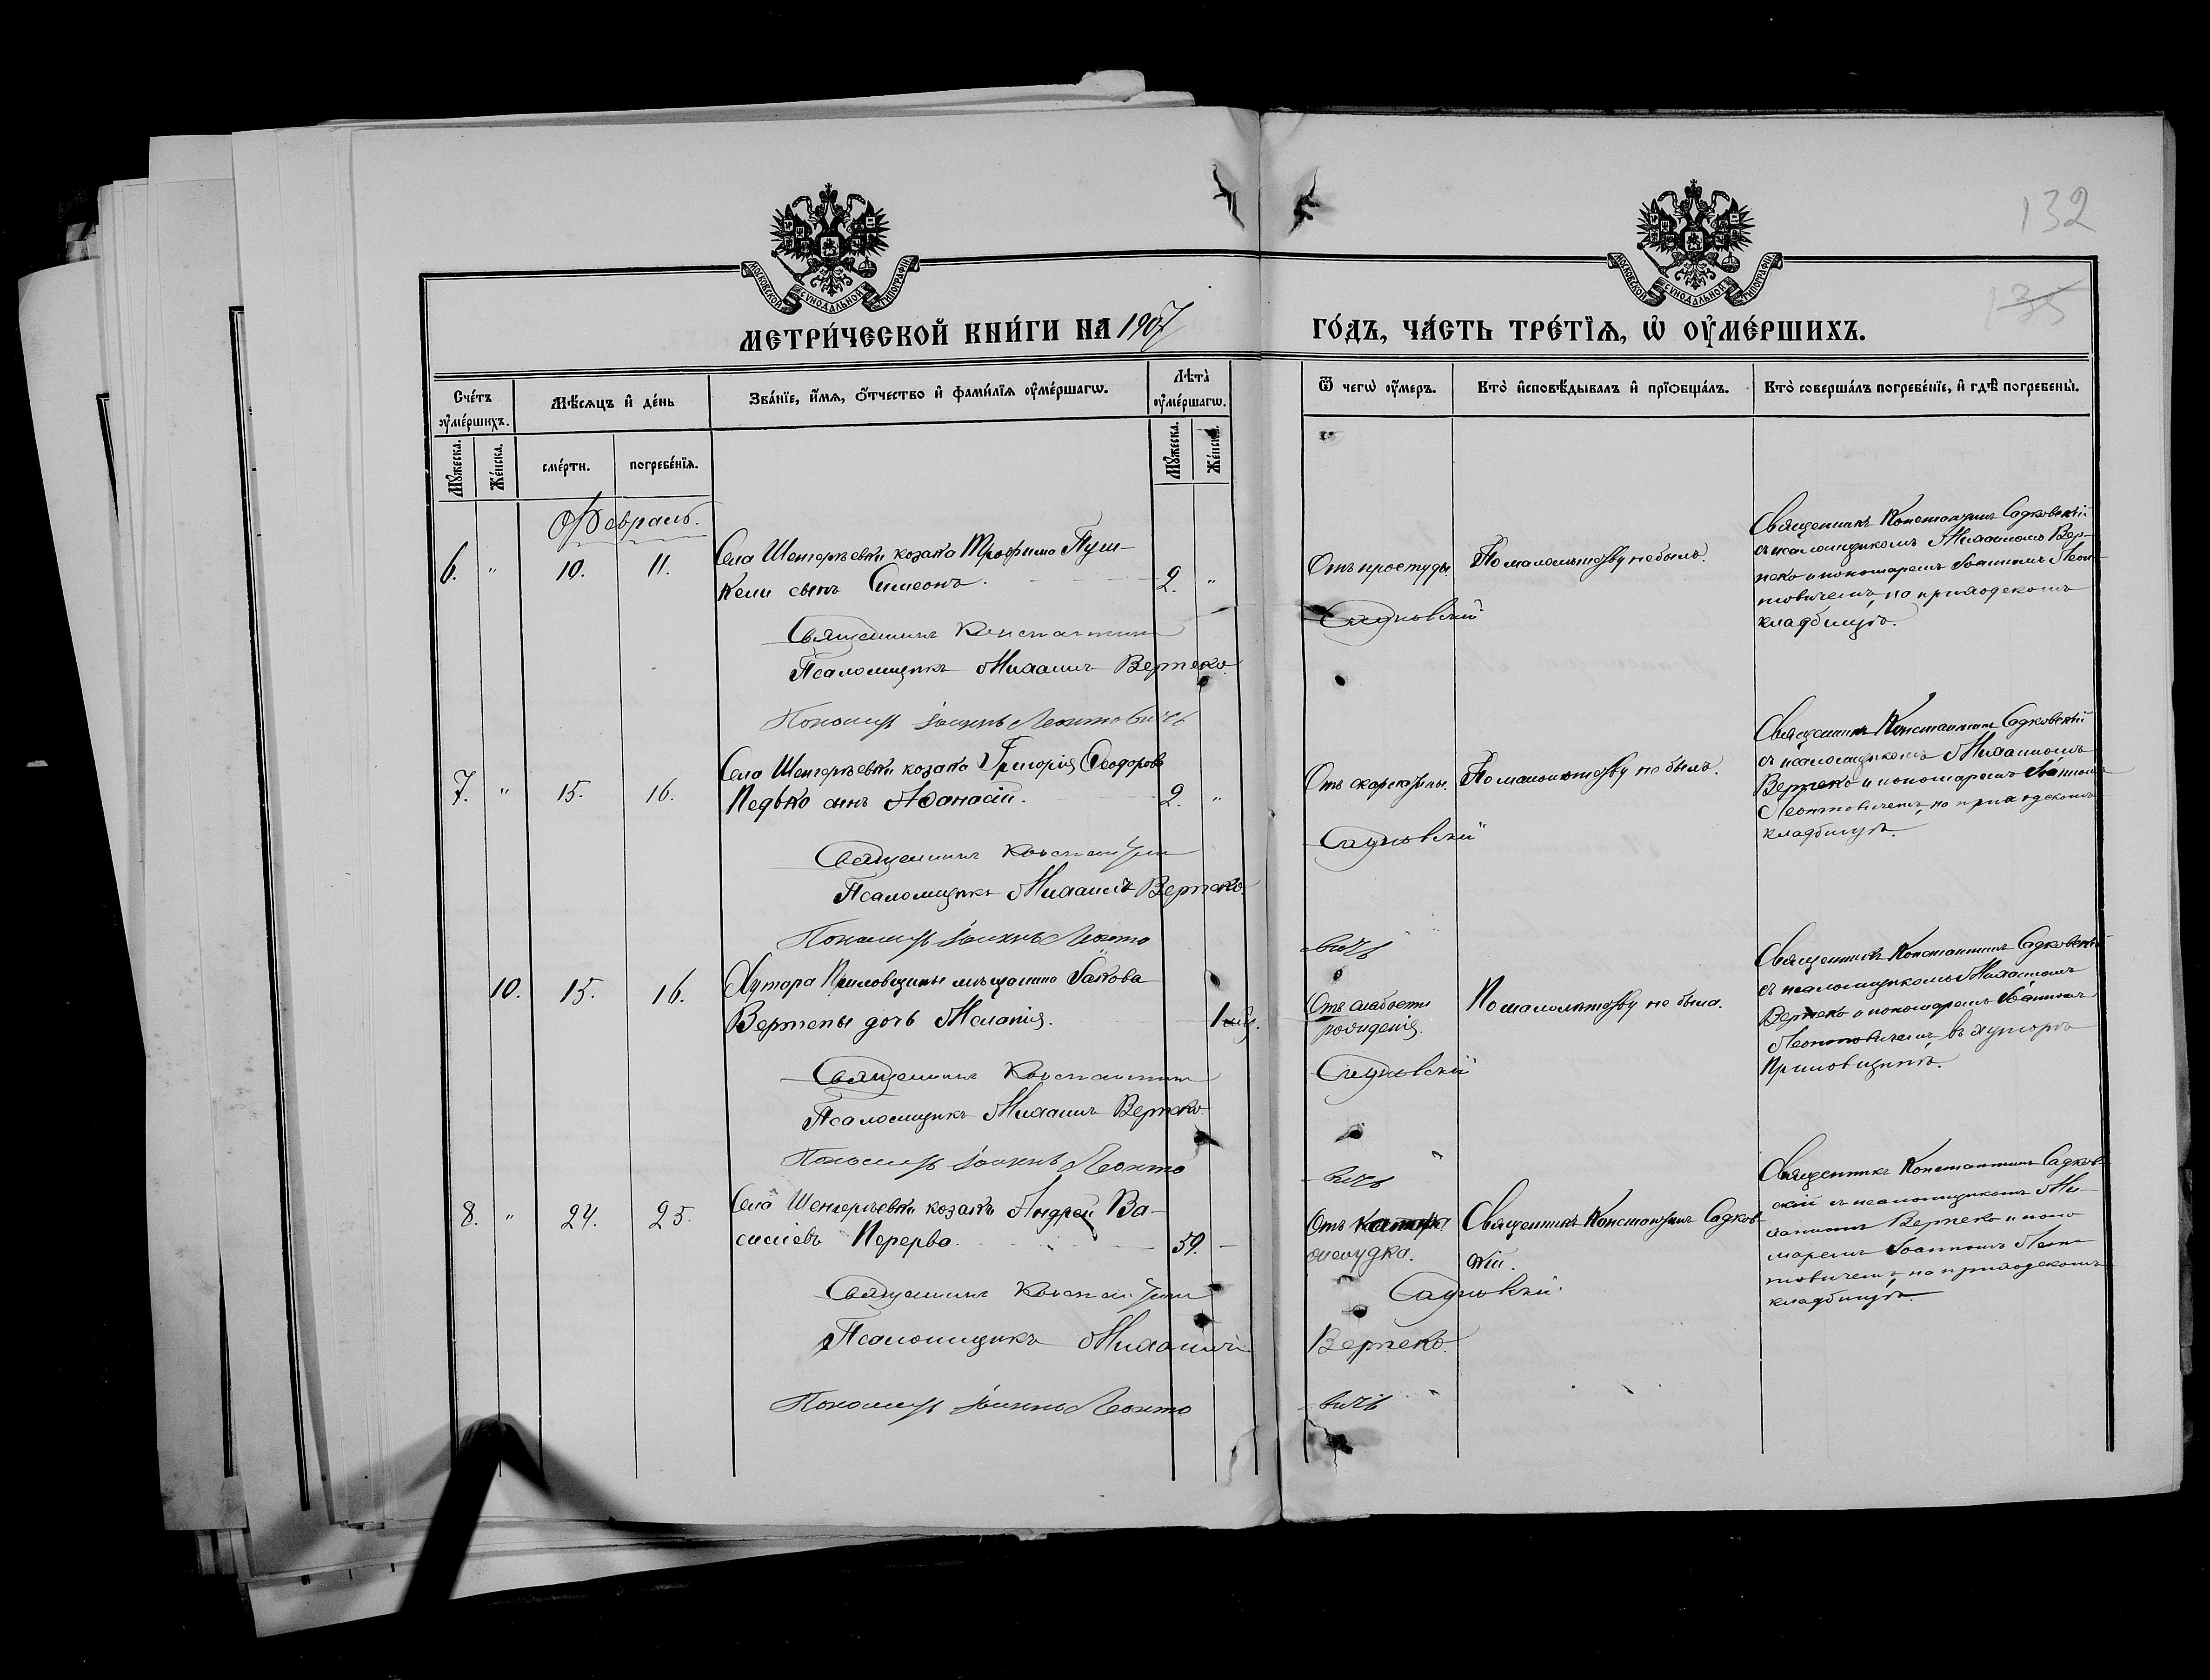 132
135
МОСКОВСКОЙ СѴНОДАЛЬНОЙ ТИПОГРАФІИ
МОСКОВСКОЙ СѴНОДАЛЬНОЙ ТИПОГРАФІИ
МЕТРИ́ЧЕСКОЙ КНИ́ГИ НА 1907 ГО́ДЪ, ЧА́СТЬ ТРЕ́ТЇѦ, Ѡ҆ ОУ҆МЕ́РШИХЪ.
Сче́тъ оу҆ме́ршихъ.
Мѣ́сѧцъ и҆ де́нь
Зва́нїе, и҆́мѧ, ѻ҆́тчество и҆ фами́лїѧ оу҆ме́ршагѡ.
Лѣ́та оу҆ме́ршагѡ.
Ѿ чегѡ̀ оу҆́меръ.
Кто̀ и҆сповѣ́дывалъ и҆ прїобща́лъ.
Кто̀ соверша́лъ погребе́нїе, и҆ гдѣ̀ погребены̀.
Мꙋ́жеска.
Же́нска.
сме́рти.
погребе́нїѧ.
Мꙋ́жеска.
Же́нска.
Февраль.
6. " 10. 11.
Села Шенгерѣевки козака Трофима
сынъ Симеонъ. 2. "
Отъ простуды.
По малолѣтству не былъ.
Священникъ Константинъ Садковскій
съ псаломщикомъ Михаиломъ Вер-
пеко и пономаремъ Іоанномъ Леон-
товичемъ, на приходскомъ
кладбищѣ.
Священникъ Константинъ Садковскій
Псаломщикъ Михаилъ Верпеко.
Пономарь Іоаннъ Леонтовичъ
7. " 15. 16.
Села Шенгерѣевки козака Григорія Ѳеодорова
Педько сынъ Аѳанасій. 2. "
Отъ скарлатины.
По малолѣтству не былъ.
Священникъ Константинъ Садковскій
съ псаломщикомъ Михаиломъ
Верпеко и пономаремъ Іоанномъ
Леонтовичемъ, на приходскомъ
кладбищѣ.
Священникъ Константинъ Садковскій
Псаломщикъ Михаилъ Верпеко.
Пономарь Іоаннъ Леонтовичъ
10. 15. 16.
Хутора мѣщанина Іакова
Вертепы дочь Меланія. 1
Отъ слабости
рожденія.
По малолѣтству не была.
Священникъ Константинъ Садковскій
съ псаломщикомъ Михаиломъ
Верпеко и пономаремъ Іоанномъ
Леонтовичемъ въ хуторѣ
Священникъ Константинъ Садковскій
Псаломщикъ Михаилъ Верпеко.
Пономарь Іоаннъ Леонтовичъ
8. " 24. 25.
Села Шенгерѣевки козакъ Андрей Ва-
силіевъ Перерва. 59. -
Отъ катара
желудка.
Священникъ Константинъ Садков-
скій.
Священникъ Константинъ Садков-
скій съ псаломщикомъ Ми-
хаиломъ Верпеко и поно-
маремъ Іоанномъ Леон-
товичемъ, на приходскомъ
кладбищѣ.
Священникъ Константинъ Садковскій.
Псаломщикъ Михаилъ Верпеко.
Пономарь Іоаннъ Леонтовичъ